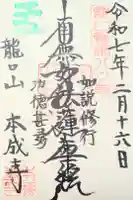 令和七年二月十六日
如説修行
南無妙法蓮華経
功徳甚多
龍口山 本成寺